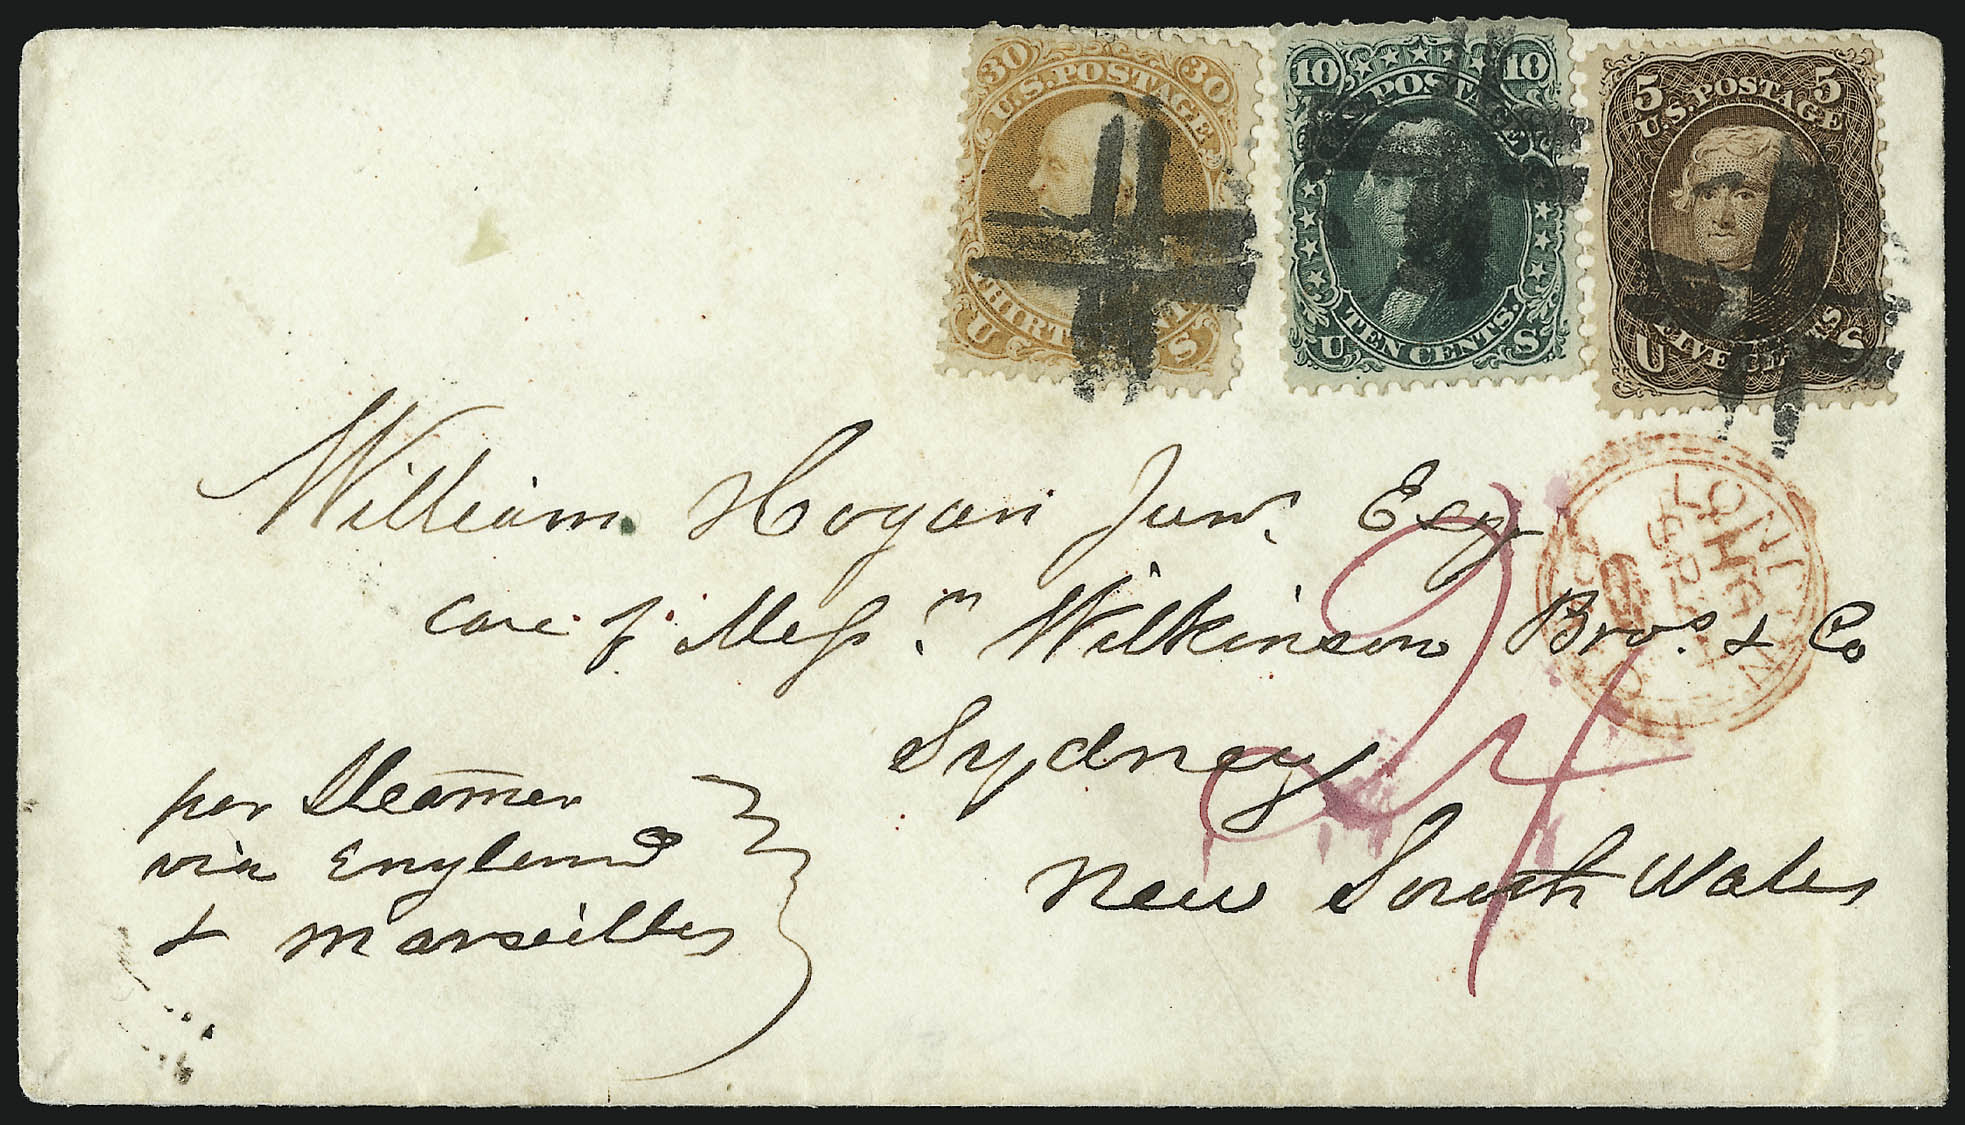 30 U.S. POSTAGE 30
THIRTY CENTS
U S
10 U.S. POSTAGE 10
TEN CENTS.
U S
5 U.S. POSTAGE 5
FIVE CENTS
U S
William Hogan Junr. Esq
care of Messrs. Wilkinson Bros. & Co
Sydney
New South Wales
per Steamer
via England
& Marseilles
24
LONDON
PAID